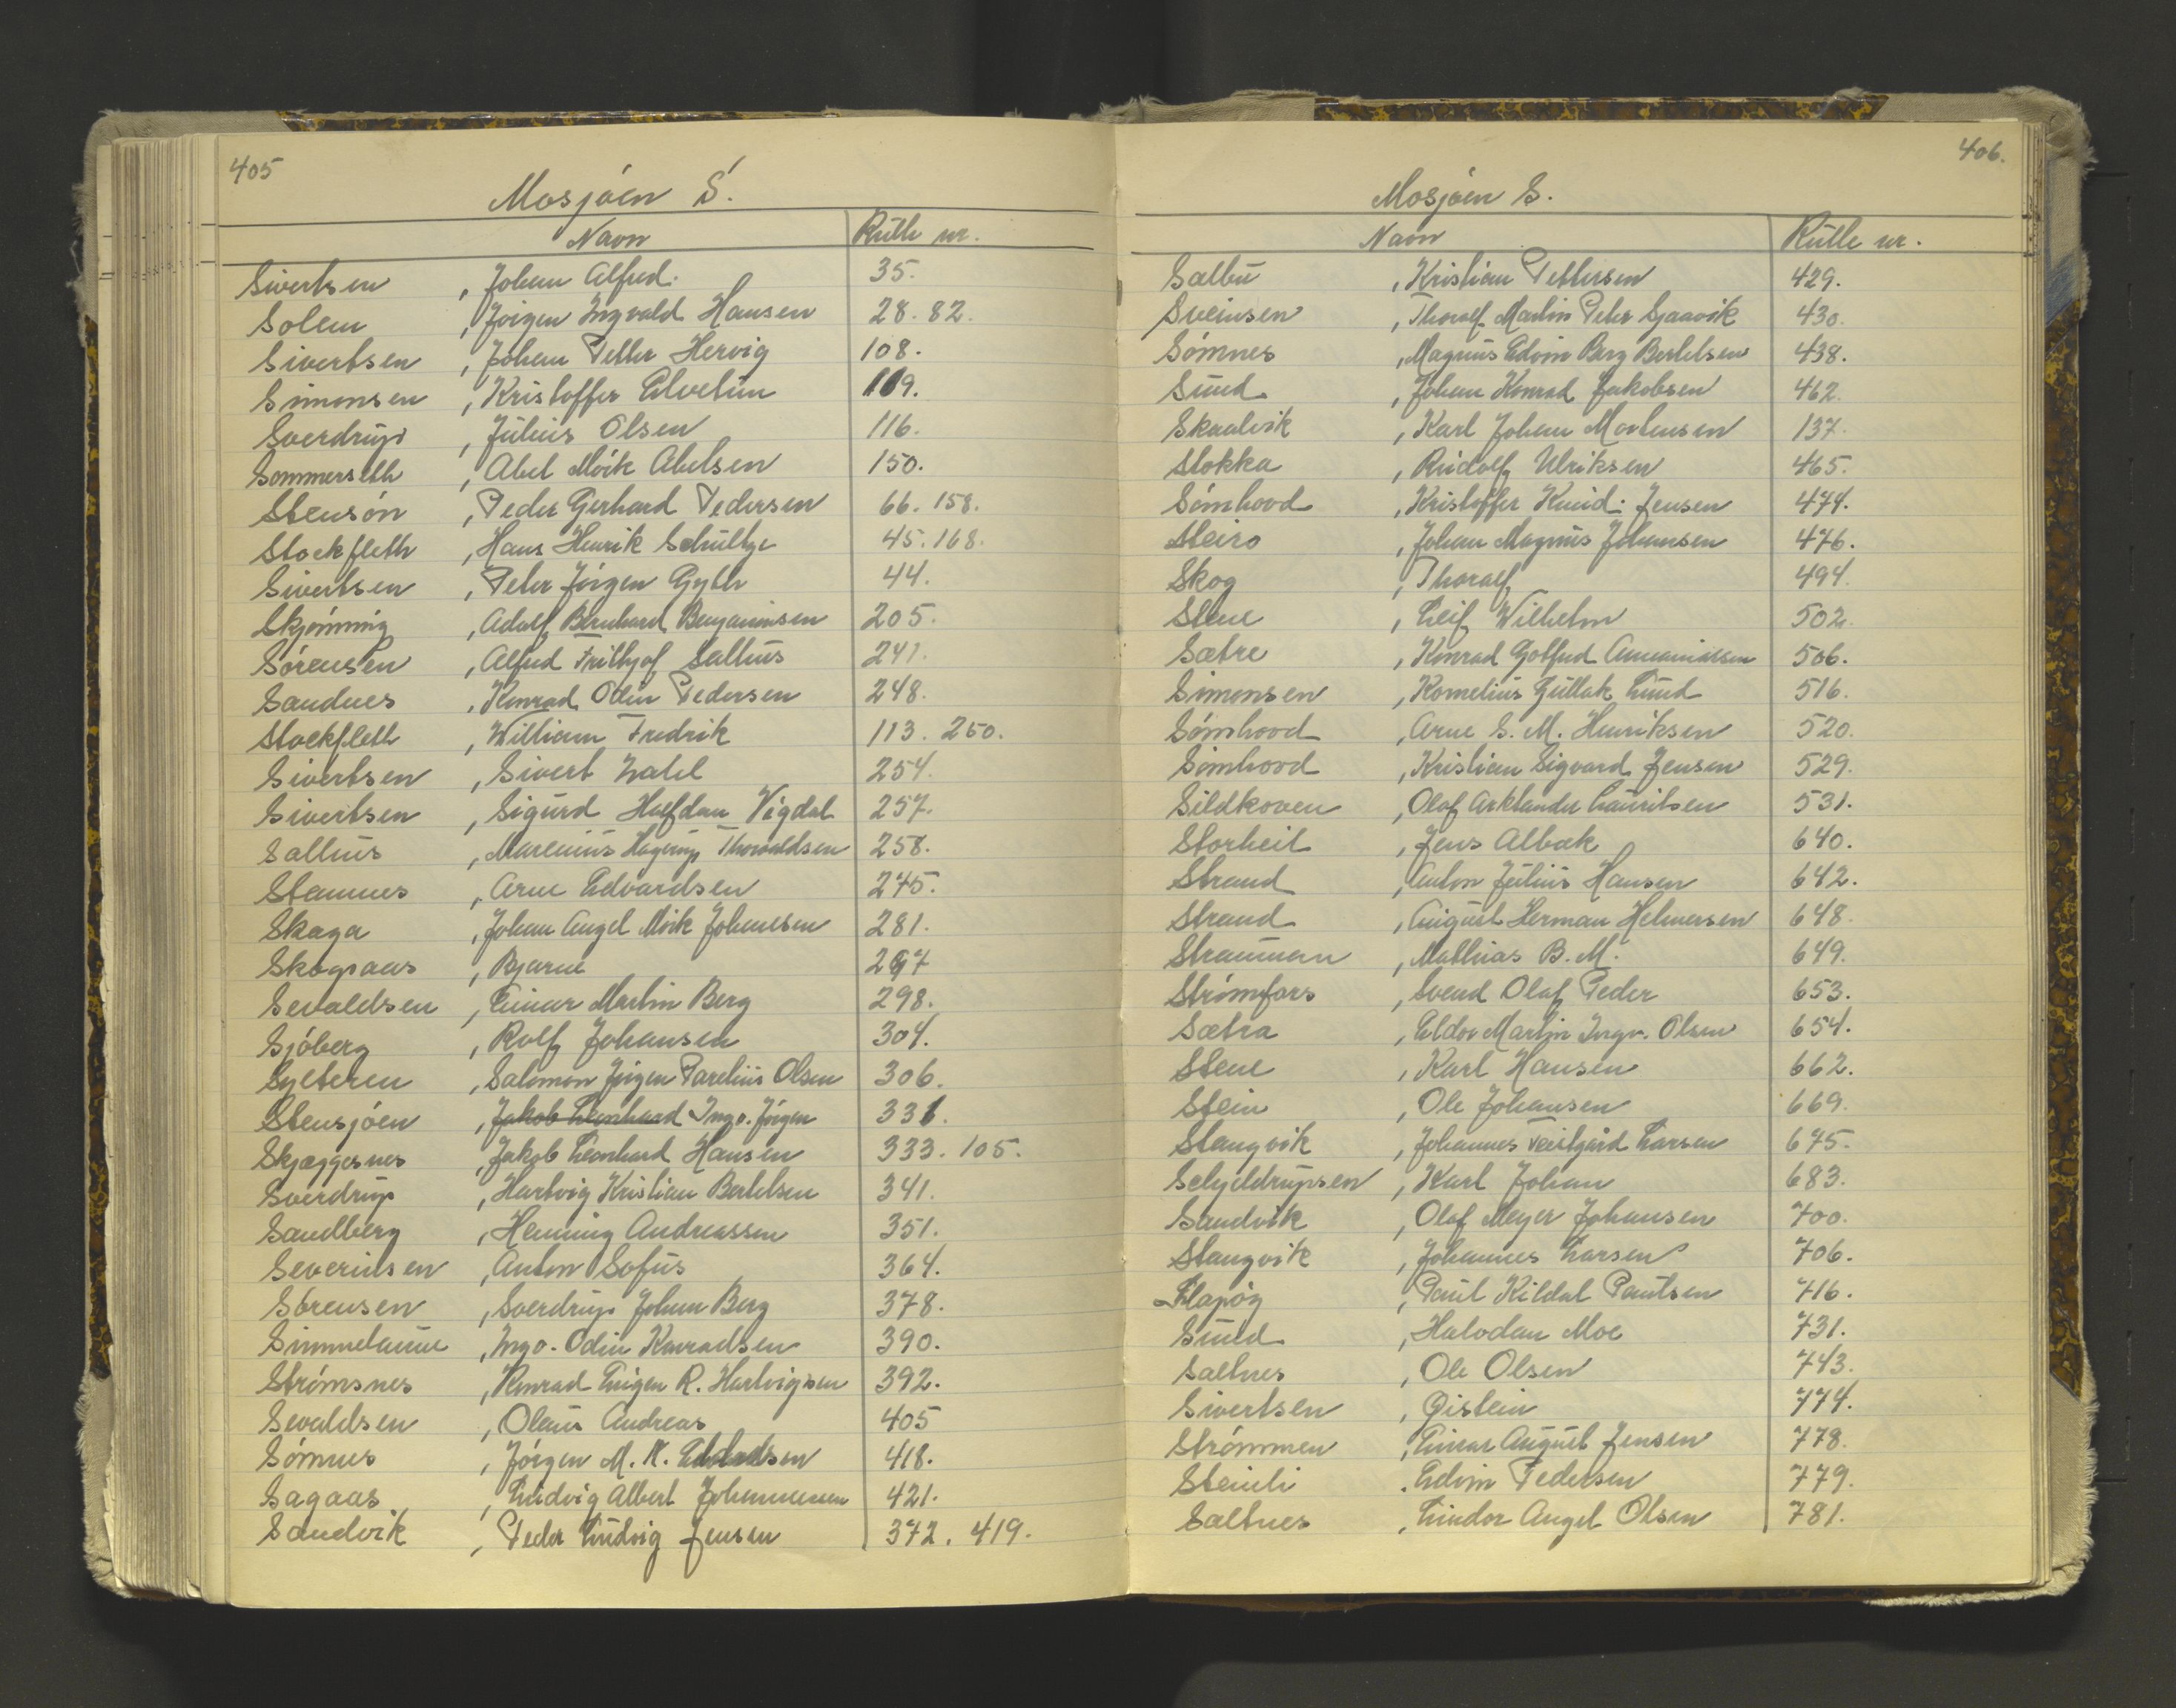 405
Mosjöen S.
Navn Rulle nr.
Sivertsen, Johan Alfred. 35.
Solem, Jörgen Ingvald Hansen 28. 82.
Sivertsen, Johan Petter Hervig 108.
Simonsen, Kristoffer Elvetun 109.
Sverdrup, Julius Olsen 116.
Sommerseth, Abel Mörk Abelsen 150.
Stensön, Peder Gerhard Pedersen 66. 158.
Stockfleth, Hans Henrik Schultze 45. 168.
Sivertsen, Peter Jörgen Gyth 44.
Skjömming, Adolf Bernhard Benjaminsen 205.
Sörensen, Alfred Frithjof Salthus 241.
Sandnes, Konrad Odin Pedersen 248.
Stockfleth, William Fredrik 113. 250.
Sivertsen, Sivert Zahl 254.
Sivertsen, Sigurd Halfdan Vigdal 257.
Salthus, Marenius Hagerup Thorvaldsen 258.
Stamnes, Arne Edvardsen 275.
Skaga, Johan Angel Mörk Johansen 281.
Skogsaas, Bjarne 297
Sevaldsen, Einar Martin Berg 298.
Sjöberg, Rolf Johansen 304.
Sylteren, Salomon Jörgen Parelius Olsen 306.
Stensjöen, Jakob Leonhard Ingv. Jörgen 331.
Skjæggesnes, Jakob Leonhard Hansen 333. 105.
Sverdrup, Hartvig Kristian Bertelsen 341.
Sandberg, Henning Andreassen 351.
Severinsen, Anton Sofus 364.
Sörensen, Sverdrup Johan Berg 378.
Simmelaune, Ingv. Odin Konradsen 390.
Strömsnes, Konrad Eugen R. Hartvigsen 392.
Sevaldsen, Olaus Andreas 405
Sömnes, Jörgen M. K. 418.
Sagaas, Ludvig Albert Johannesen 421.
Sandvik, Peder Ludvig Jensen 372. 419.
406.
Mosjöen S.
Navn Rulle nr.
Sælbu, Kristian Pettersen 429.
Sveinsen, Thoralf Martin Peter Sjaavik 430.
Sömnes, Magnus Edvin Berg Bertelsen 438.
Sund, Johan Konrad Jakobsen 462.
Skaalvik, Karl Johan Mortensen 137.
Stokka, Rudolf Ulriksen 465.
Sömhovd, Kristoffer Knud. Jensen 474.
Steiro, Johan Magnus Johansen 476.
Skog, Thoralf 494.
Stene, Leif Wilhelm 502.
Sætre, Konrad Gotfred Ananiassen 506.
Simonsen, Kornelius Gullak Lund 516.
Sömhovd, Arne S. M. Henriksen 520.
Sömhovd, Kristian Sigvard Jensen 529.
Sildkoven, Olaf Arktander Lauritsen 531.
Storheil, Jens Albæk 640.
Strand, Anton Julius Hansen 642.
Strand, August Herman Helmersen 648.
Strauman, Mathias B. M. 649.
Strömfors, Svend Olaf Peder 653.
Sætra, Eldor Martin Ingv. Olsen 654.
Stene, Karl Hansen 662.
Stein, Ole Johansen 669.
Stangvik, Johannes Teistgård Larsen 675.
Schjeldrupsen, Karl Johan 683.
Sandvik, Olaf Meyer Johansen 700.
Stangvik, Johannes Larsen 706.
Slapög, Paul Kildal Paulsen 716.
Sund, Halvdan Moe 731.
Saltnes, Ole Olsen 743.
Sivertsen, Øistein 774.
Strömmen, Einar August Jensen 778.
Steinli, Edvin Pedersen 779.
Saltnes, Lindor Angel Olsen 781.